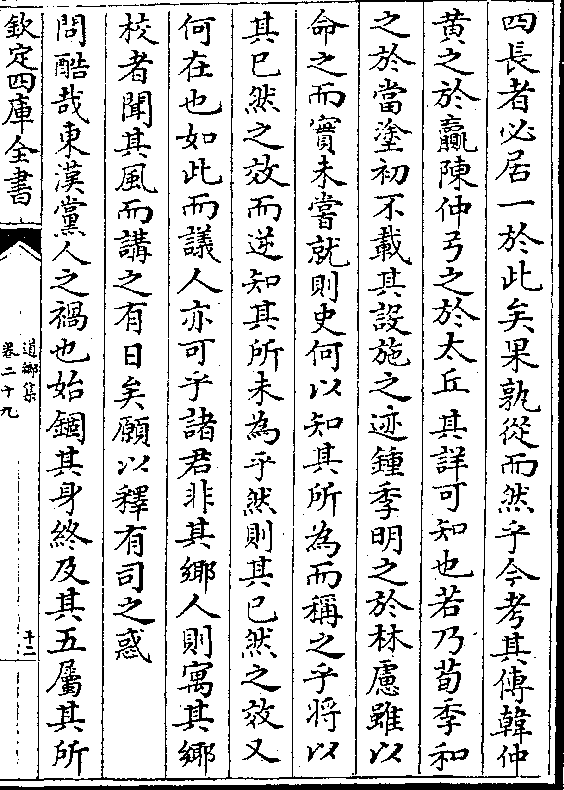 四長者必居一於此矣果孰從而然乎今考其傳韓仲
黄之於嬴陳仲弓之於太丘其詳可知也若乃荀季和
之於當塗初不載其設施之迹鍾季明之於林慮雖以
命之而實未嘗就則史何以知其所為而稱之乎將以
其已然之效而逆知其所未為乎然則其已然之效又
何在也如此而議人亦可乎諸君非其鄉人則寓其鄉
校者聞其風而講之有日矣願以釋有司之惑
問酷哉東漢黨人之禍也始錮其身終及其五屬其所
欽定四庫全書
道鄉集
卷二十九
十二